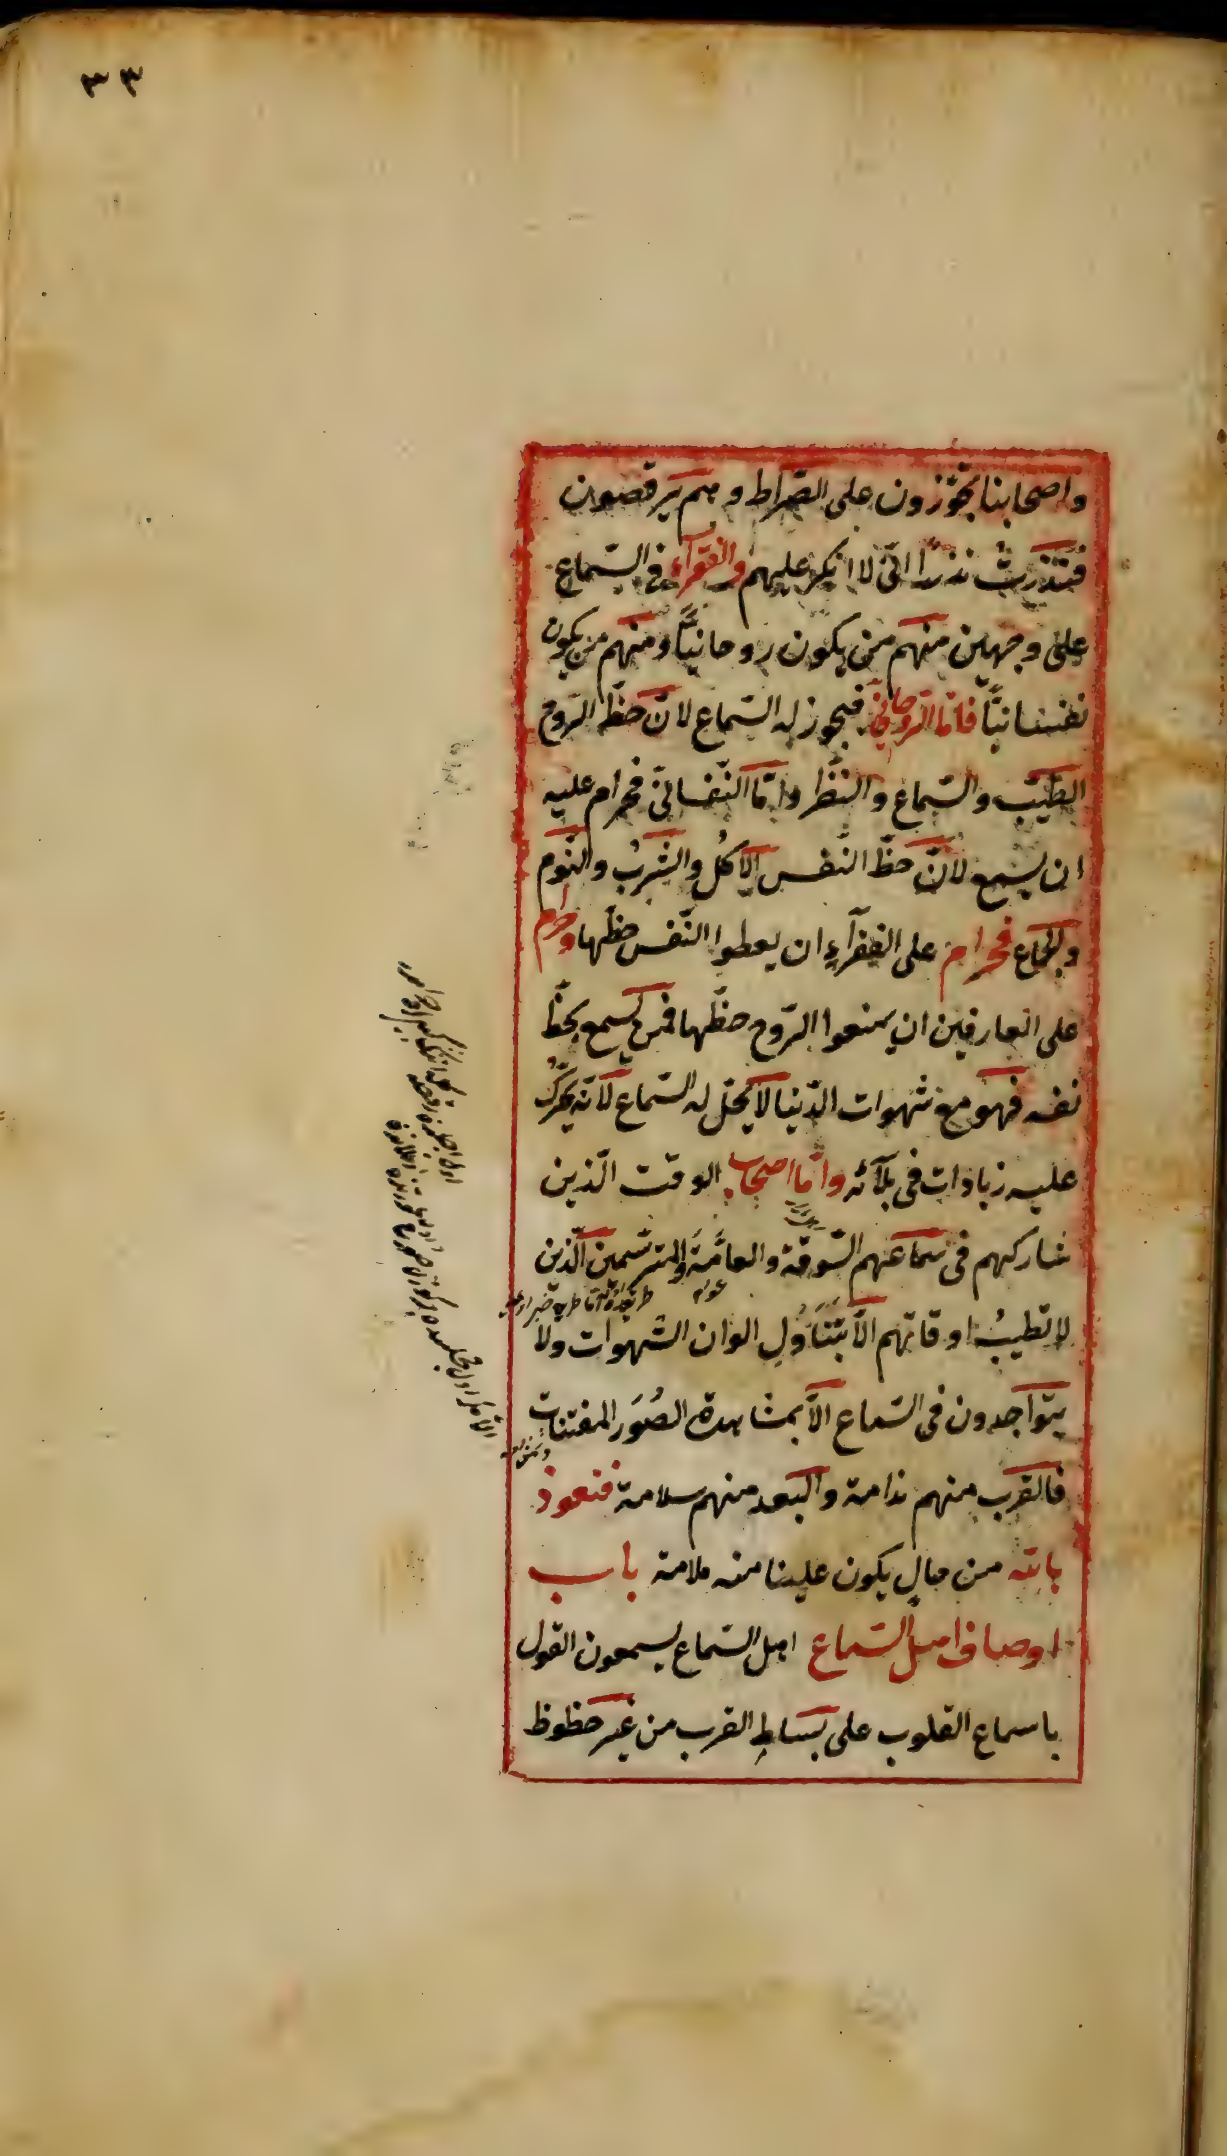 ٣٣
واصحابنا يجوّزون على الصّراط وهم يرقصون
فنذرت نذرًا انّى لا انكر عليهم والفقرآء فى السّماع
على وجهين منهم من يكون روحانيًّا ومنهم من يكون
نفسانيًّا فامّا الرّوحانىّ فيجوز له السّماع لانّ حظّ الرّوح
الطّيب والسّماع والنّظر وامّا النّفسانىّ فحرام عليه
ان يسمع لانّ حظّ النّفس الاكل والشّرب والنّوم
والجماع فحرام على الفقرآء ان يعطوا النّفس حظّها وحرام
على العارفين ان يمنعوا الرّوح حظّها فمن يسمع بحظّ
نفسه فهو مع شهوات الدّنيا لا يحلّ له السّماع لانّه يحرّك
عليه زيادات فى بلآئه وامّا اصحاب الوقت الّذين
شاركهم فى سماعهم السّوقة والعامّة والمترسّمين الّذين
عوام
لا تطيب اوقاتهم الّا بتناول الوان الشّهوات ولا
يتواجدون فى السّماع الّا بمشاهدة الصُوَر المفتنات
فالقرب منهم ندامة والبعد منهم سلامة فنعوذ
بالله من حال يكون علينا منه ملامة باب
اوصاف اهل السّماع اهل السّماع يسمعون القول
باسماع القلوب على بساط القرب من غير حظوظ